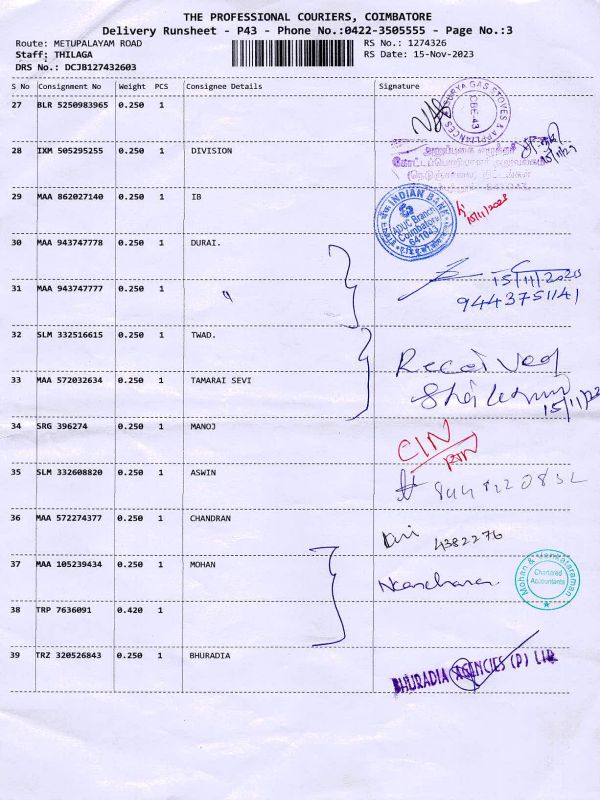 THE PROFESSIONAL COURIERS, COIMBATORE
Delivery Runsheet - P43 - Phone No.:0422-3505555 - Page No.:3
Route: METUPALAYAM ROAD RS No.: 1274326
Staff: THILAGA RS Date: 15-Nov-2023
DRS No.: DCJB127432603
S No Consignment No Weight PCS Consignee Details Signature
27 BLR 5250983965 0.250 1
SURYA GAS STOVES & APPLIANCES CBE-43
28 IXM 505295255 0.250 1 DIVISION
15/11/23
29 MAA 862027140 0.250 1 IB
INDIAN BANK
ADUC Branch
Coimbatore
641043
15/11/2023
30 MAA 943747778 0.250 1 DURAI.
15/11/2023
31 MAA 943747777 0.250 1
9443751141
32 SLM 332516615 0.250 1 TWAD.
Received
33 MAA 572032634 0.250 1 TAMARAI SEVI
15/11/23
34 SRG 396274 0.250 1 MANOJ
CIN
RTN
35 SLM 332608820 0.250 1 ASWIN
36 MAA 572274377 0.250 1 CHANDRAN
4382276
37 MAA 105239434 0.250 1 MOHAN
Mohan & Venkataraman
Chartered
Accountants
38 TRP 7636091 0.420 1
39 TRZ 320526843 0.250 1 BHURADIA
BHURADIA AGENCIES (P) LTD